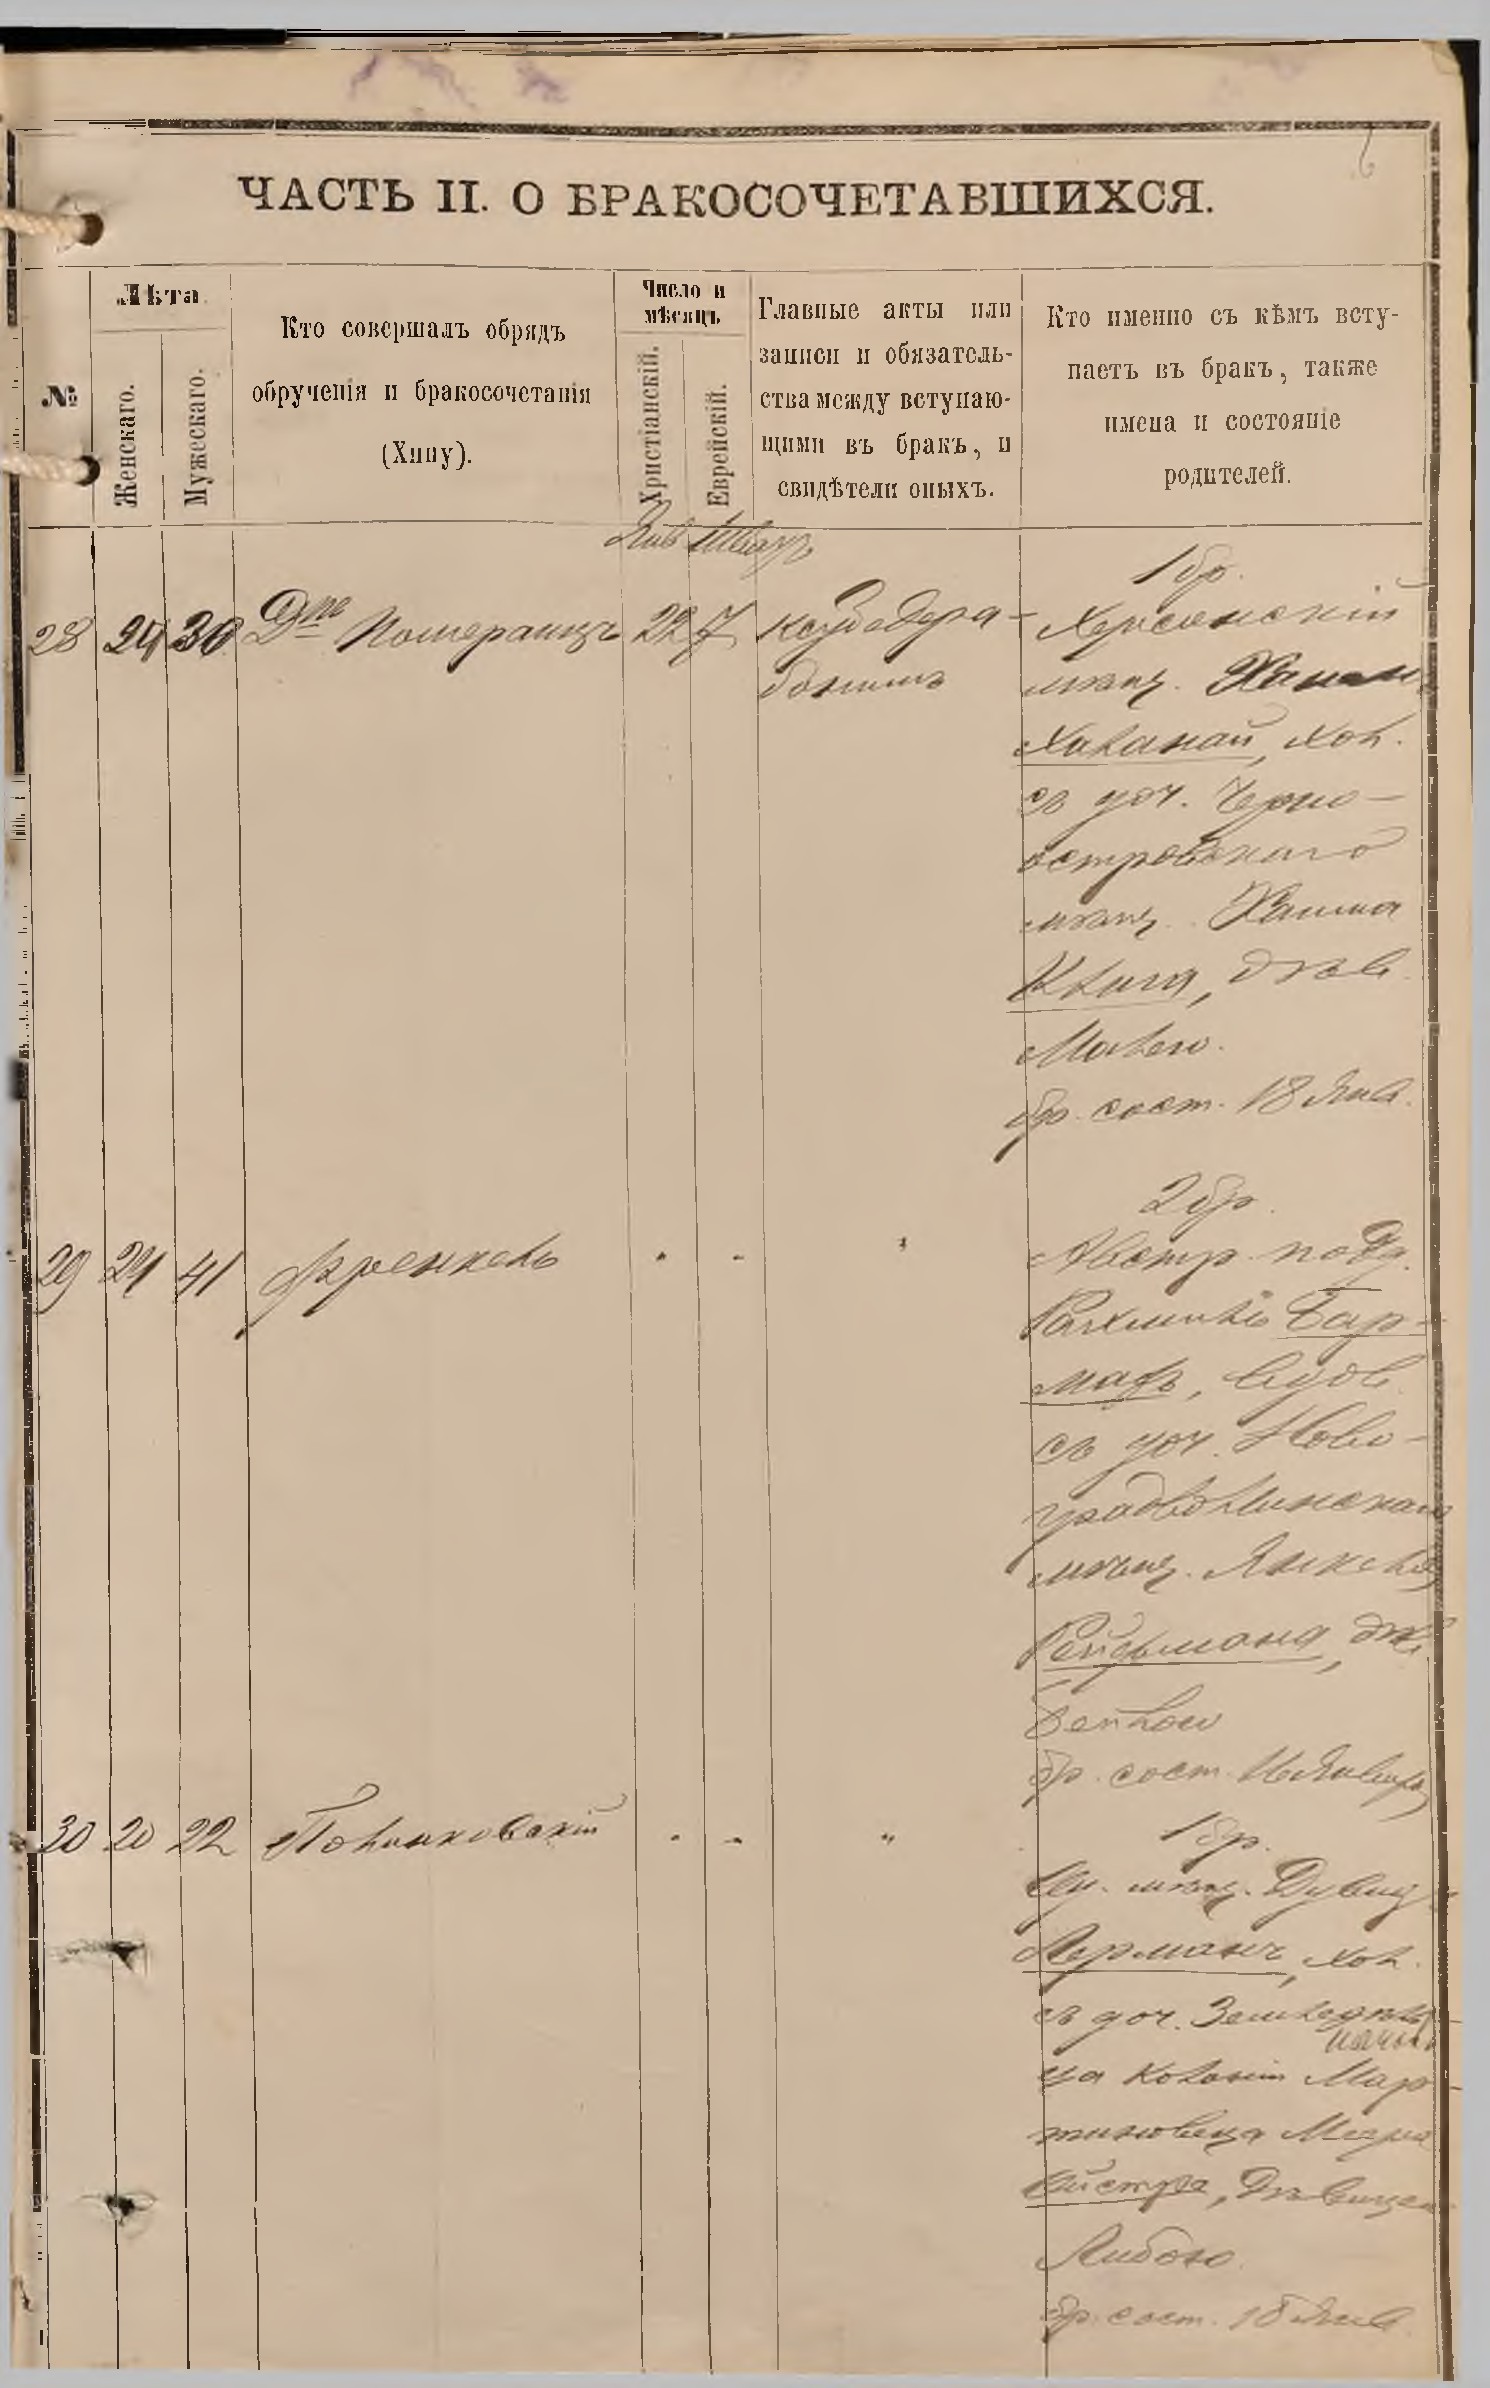 ЧАСТЬ II. О БРАКОСОЧЕТАВШИХСЯ.
№
Лѣта
Женскаго.
Мужескаго.
Кто совершалъ обрядъ
обрученія и бракосочетанія
(Хупу).
Число и
мѣсяцъ
Христіанскій.
Еврейскій.
Главные акты или
записи и обязатель-
ства между вступаю-
щими въ бракъ, и
свидѣтели оныхъ.
Кто именно съ кѣмъ всту-
паетъ въ бракъ, также
имена и состояніе
родителей.
Янв Шватъ
28 24 30 Померанцъ 22 7
1 бр.
Херсонскій
мѣщ.
хол.
съ доч. Черно-
островскаго
мѣщ. Хаима
дѣв.
бр. сост. 18 Янв.
29 24 41 Френкель " " "
2 бр.
Австр. подд.
Рахмиль Бар-
, вдов.
съ доч. Ново-
градволынскаго
мѣщ. Янкеля
Ройфмана, дѣв.
Бейлою
бр. сост. Января
30 20 22 Полинковскій " " "
1 бр.
мѣщ. Дувид
Лерманъ, хол.
съ доч. Земледѣль
ца Колоніи Мар-
тиновица
, Дѣвицею
Либою
бр. сост. 18 Янв.